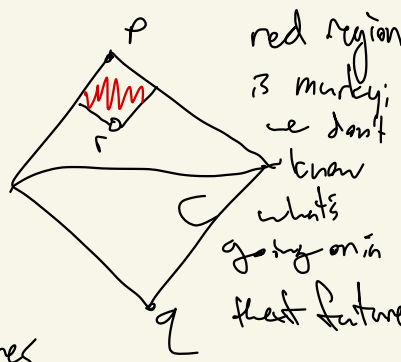 P
red region
is murky;
we don't
r
know
what's
C
going on in
that future
q